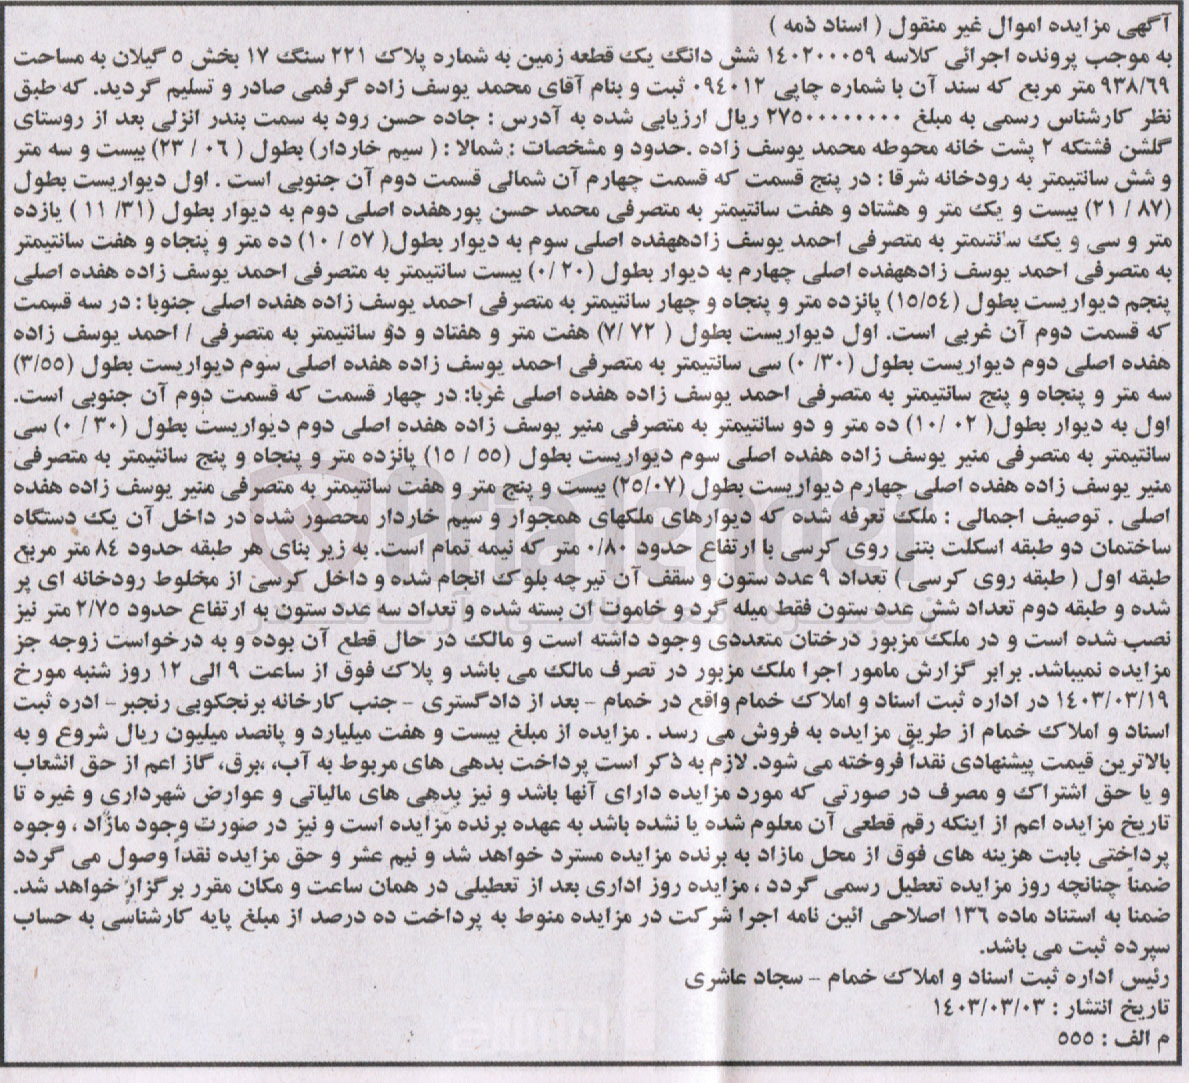 آگهی مزایده اموال غیر منقول ( اسناد ذمه )
به موجب پرونده اجرائی کلاسه ۱۴۰۲۰۰۰۵۹ شش دانگ یک قطعه زمین به شماره پلاک ۲۲۱ سنگ ۱۷ بخش ۵ گیلان به مساحت
۹۳۸/۶۹ متر مربع که سند آن با شماره چاپی ۰۹۴۰۱۲ ثبت و بنام آقای محمد یوسف زاده گرفمی صادر و تسلیم گردید. که طبق
نظر کارشناس رسمی به مبلغ ۲۷۵۰۰۰۰۰۰۰۰ ریال ارزیابی شده به آدرس : جاده حسن رود به سمت بندر انزلی بعد از روستای
گلشن فشتکه ۲ پشت خانه محوطه محمد یوسف زاده .حدود و مشخصات : شمالا : ( سیم خاردار) بطول ( ۰۶ / ۲۳) بیست و سه متر
و شش سانتیمتر به رودخانه شرقا : در پنج قسمت که قسمت چهارم آن شمالی قسمت دوم آن جنوبی است . اول دیواریست بطول
(۸۷ / ۲۱) بیست و یک متر و هشتاد و هفت سانتیمتر به متصرفی محمد حسن پورهفده اصلی دوم به دیوار بطول (۳۱/ ۱۱ ) یازده
متر و سی و یک سانتیمتر به متصرفی احمد یوسف زادههفده اصلی سوم به دیوار بطول( ۵۷ / ۱۰) ده متر و پنجاه و هفت سانتیمتر
به متصرفی احمد یوسف زادههفده اصلی چهارم به دیوار بطول (۰/۲۰) بیست سانتیمتر به متصرفی احمد یوسف زاده هفده اصلی
پنجم دیواریست بطول (۱۵/۵۴) پانزده متر و پنجاه و چهار سانتیمتر به متصرفی احمد یوسف زاده هفده اصلی جنوبا : در سه قسمت
که قسمت دوم آن غربی است. اول دیواریست بطول ( ۷۲ /۷) هفت متر و هفتاد و دو سانتیمتر به متصرفی / احمد یوسف زاده
هفده اصلی دوم دیواریست بطول (۳۰/ ۰) سی سانتیمتر به متصرفی احمد یوسف زاده هفده اصلی سوم دیواریست بطول (۳/۵۵)
سه متر و پنجاه و پنج سانتیمتر به متصرفی احمد یوسف زاده هفده اصلی غربا: در چهار قسمت که قسمت دوم آن جنوبی است.
اول به دیوار بطول( ۰۲ /۱۰) ده متر و دو سانتیمتر به متصرفی منیر یوسف زاده هفده اصلی دوم دیواریست بطول (۳۰ / ۰) سی
سانتیمتر به متصرفی منیر یوسف زاده هفده اصلی سوم دیواریست بطول (۵۵ / ۱۵) پانزده متر و پنجاه و پنج سانتیمتر به متصرفی
منیر یوسف زاده هفده اصلی چهارم دیواریست بطول (۲۵/۰۷) بیست و پنج متر و هفت سانتیمتر به متصرفی منیر یوسف زاده هفده
اصلی . توصیف اجمالی : ملک تعرفه شده که دیوارهای ملکهای همجوار و سیم خاردار محصور شده در داخل آن یک دستگاه
ساختمان دو طبقه اسکلت بتنی روی کرسی با ارتفاع حدود ۰/۸۰ متر که نیمه تمام است. به زیر بنای هر طبقه حدود ۸۴ متر مربع
طبقه اول ( طبقه روی کرسی ) تعداد ۹ عدد ستون و سقف آن تیرچه بلوک انجام شده و داخل کرسی از مخلوط رودخانه ای پر
شده و طبقه دوم تعداد شش عدد ستون فقط میله گرد و خاموت ان بسته شده و تعداد سه عدد ستون به ارتفاع حدود ۲/۷۵ متر نیز
نصب شده است و در ملک مزبور درختان متعددی وجود داشته است و مالک در حال قطع آن بوده و به درخواست زوجه جز
مزایده نمیباشد. برابر گزارش مامور اجرا ملک مزبور در تصرف مالک می باشد و پلاک فوق از ساعت ۹ الی ۱۲ روز شنبه مورخ
۱۴۰۳/۰۳/۱۹ در اداره ثبت اسناد و املاک خمام واقع در خمام - بعد از دادگستری - جنب کارخانه برنجکوبی رنجبر- ادره ثبت
اسناد و املاک خمام از طریق مزایده به فروش می رسد . مزایده از مبلغ بیست و هفت میلیارد و پانصد میلیون ریال شروع و به
بالاترین قیمت پیشنهادی نقداً فروخته می شود. لازم به ذکر است پرداخت بدهی های مربوط به آب، ،برق، گاز اعم از حق انشعاب
و یا حق اشتراک و مصرف در صورتی که مورد مزایده دارای آنها باشد و نیز بدهی های مالیاتی و عوارض شهرداری و غیره تا
تاریخ مزایده اعم از اینکه رقم قطعی آن معلوم شده یا نشده باشد به عهده برنده مزایده است و نیز در صورت وجود مازاد ، وجوه
پرداختی بابت هزینه های فوق از محل مازاد به برنده مزایده مسترد خواهد شد و نیم عشر و حق مزایده نقداً وصول می گردد
ضمناً چنانچه روز مزایده تعطیل رسمی گردد ، مزایده روز اداری بعد از تعطیلی در همان ساعت و مکان مقرر برگزار خواهد شد.
ضمنا به استناد ماده ۱۳۶ اصلاحی ائین نامه اجرا شرکت در مزایده منوط به پرداخت ده درصد از مبلغ پایه کارشناسی به حساب
سپرده ثبت می باشد.
رئیس اداره ثبت اسناد و املاک خمام - سجاد عاشری
تاریخ انتشار : ۱۴۰۳/۰۳/۰۳
م الف : ۵۵۵
AriaTender